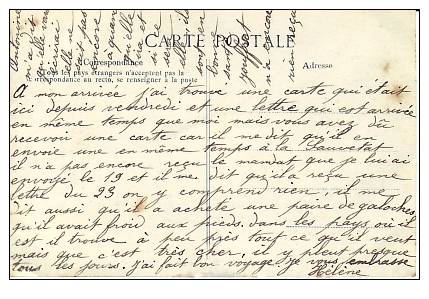 CARTE POSTALE
Correspondance
Tous les pays étrangers n'acceptent pas la
correspondance au recto, se renseigner à la poste
Adresse
A mon arrivée j'ai trouvé une carte qui était
ici depuis vendredi et une lettre qui est arrivée
en même temps que moi mais vous avez dû
recevoir une carte car il me dit qu'il en
envoie une en même temps à la Sauvetat
il n'a pas encore reçu le mandat que je lui ai
envoyé le 19 et il me dit qu'il a reçu une
lettre du 23 on y comprend rien, il me
dit aussi qu'il a acheté une paire de galoches
qu'il avait froid aux pieds. dans les pays où il
est il trouve à peu près tout ce qu'il veut
mais que c'est très cher, il y pleut presque
tous les jours. J'ai fait bon voyage Je vous embrasse
Hélène